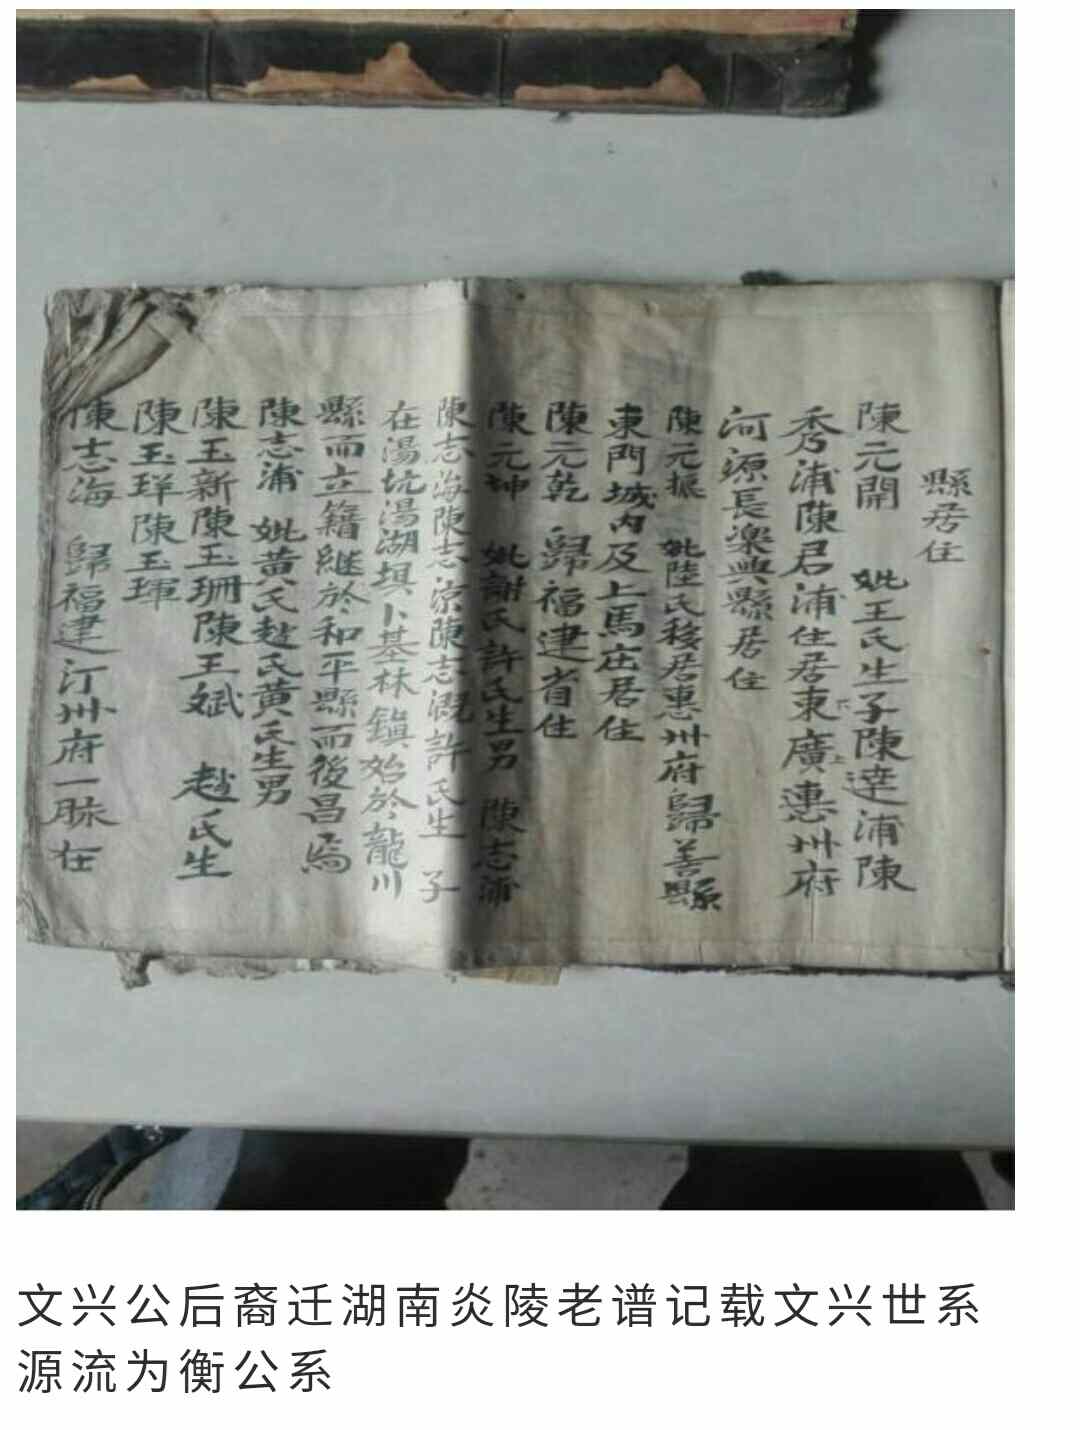 縣居住
陳元開 妣王氏生子陳達浦陳
秀浦陳君浦住居東廣惠州府
河源長樂興縣居住
陳元振 妣陸氏移居惠州府歸善縣
東門城內及上馬庄居住
陳元乾 歸福建省住
陳元坤 妣謝氏許氏生男 陳志浦
陳志海陳志 陳志 許氏生 子
在湯坑湯湖埧卜基林鎮始於龍川
縣而立籍継於和平縣而後昌焉
陳志浦 妣黄氏赵氏黄氏生男
陳玉新陳玉珊陳玉斌 赵氏生
陳玉珜陳玉琿
陳志海 歸福建汀州府一脉在
文兴公后裔迁湖南炎陵老谱记载文兴世系
源流为衡公系